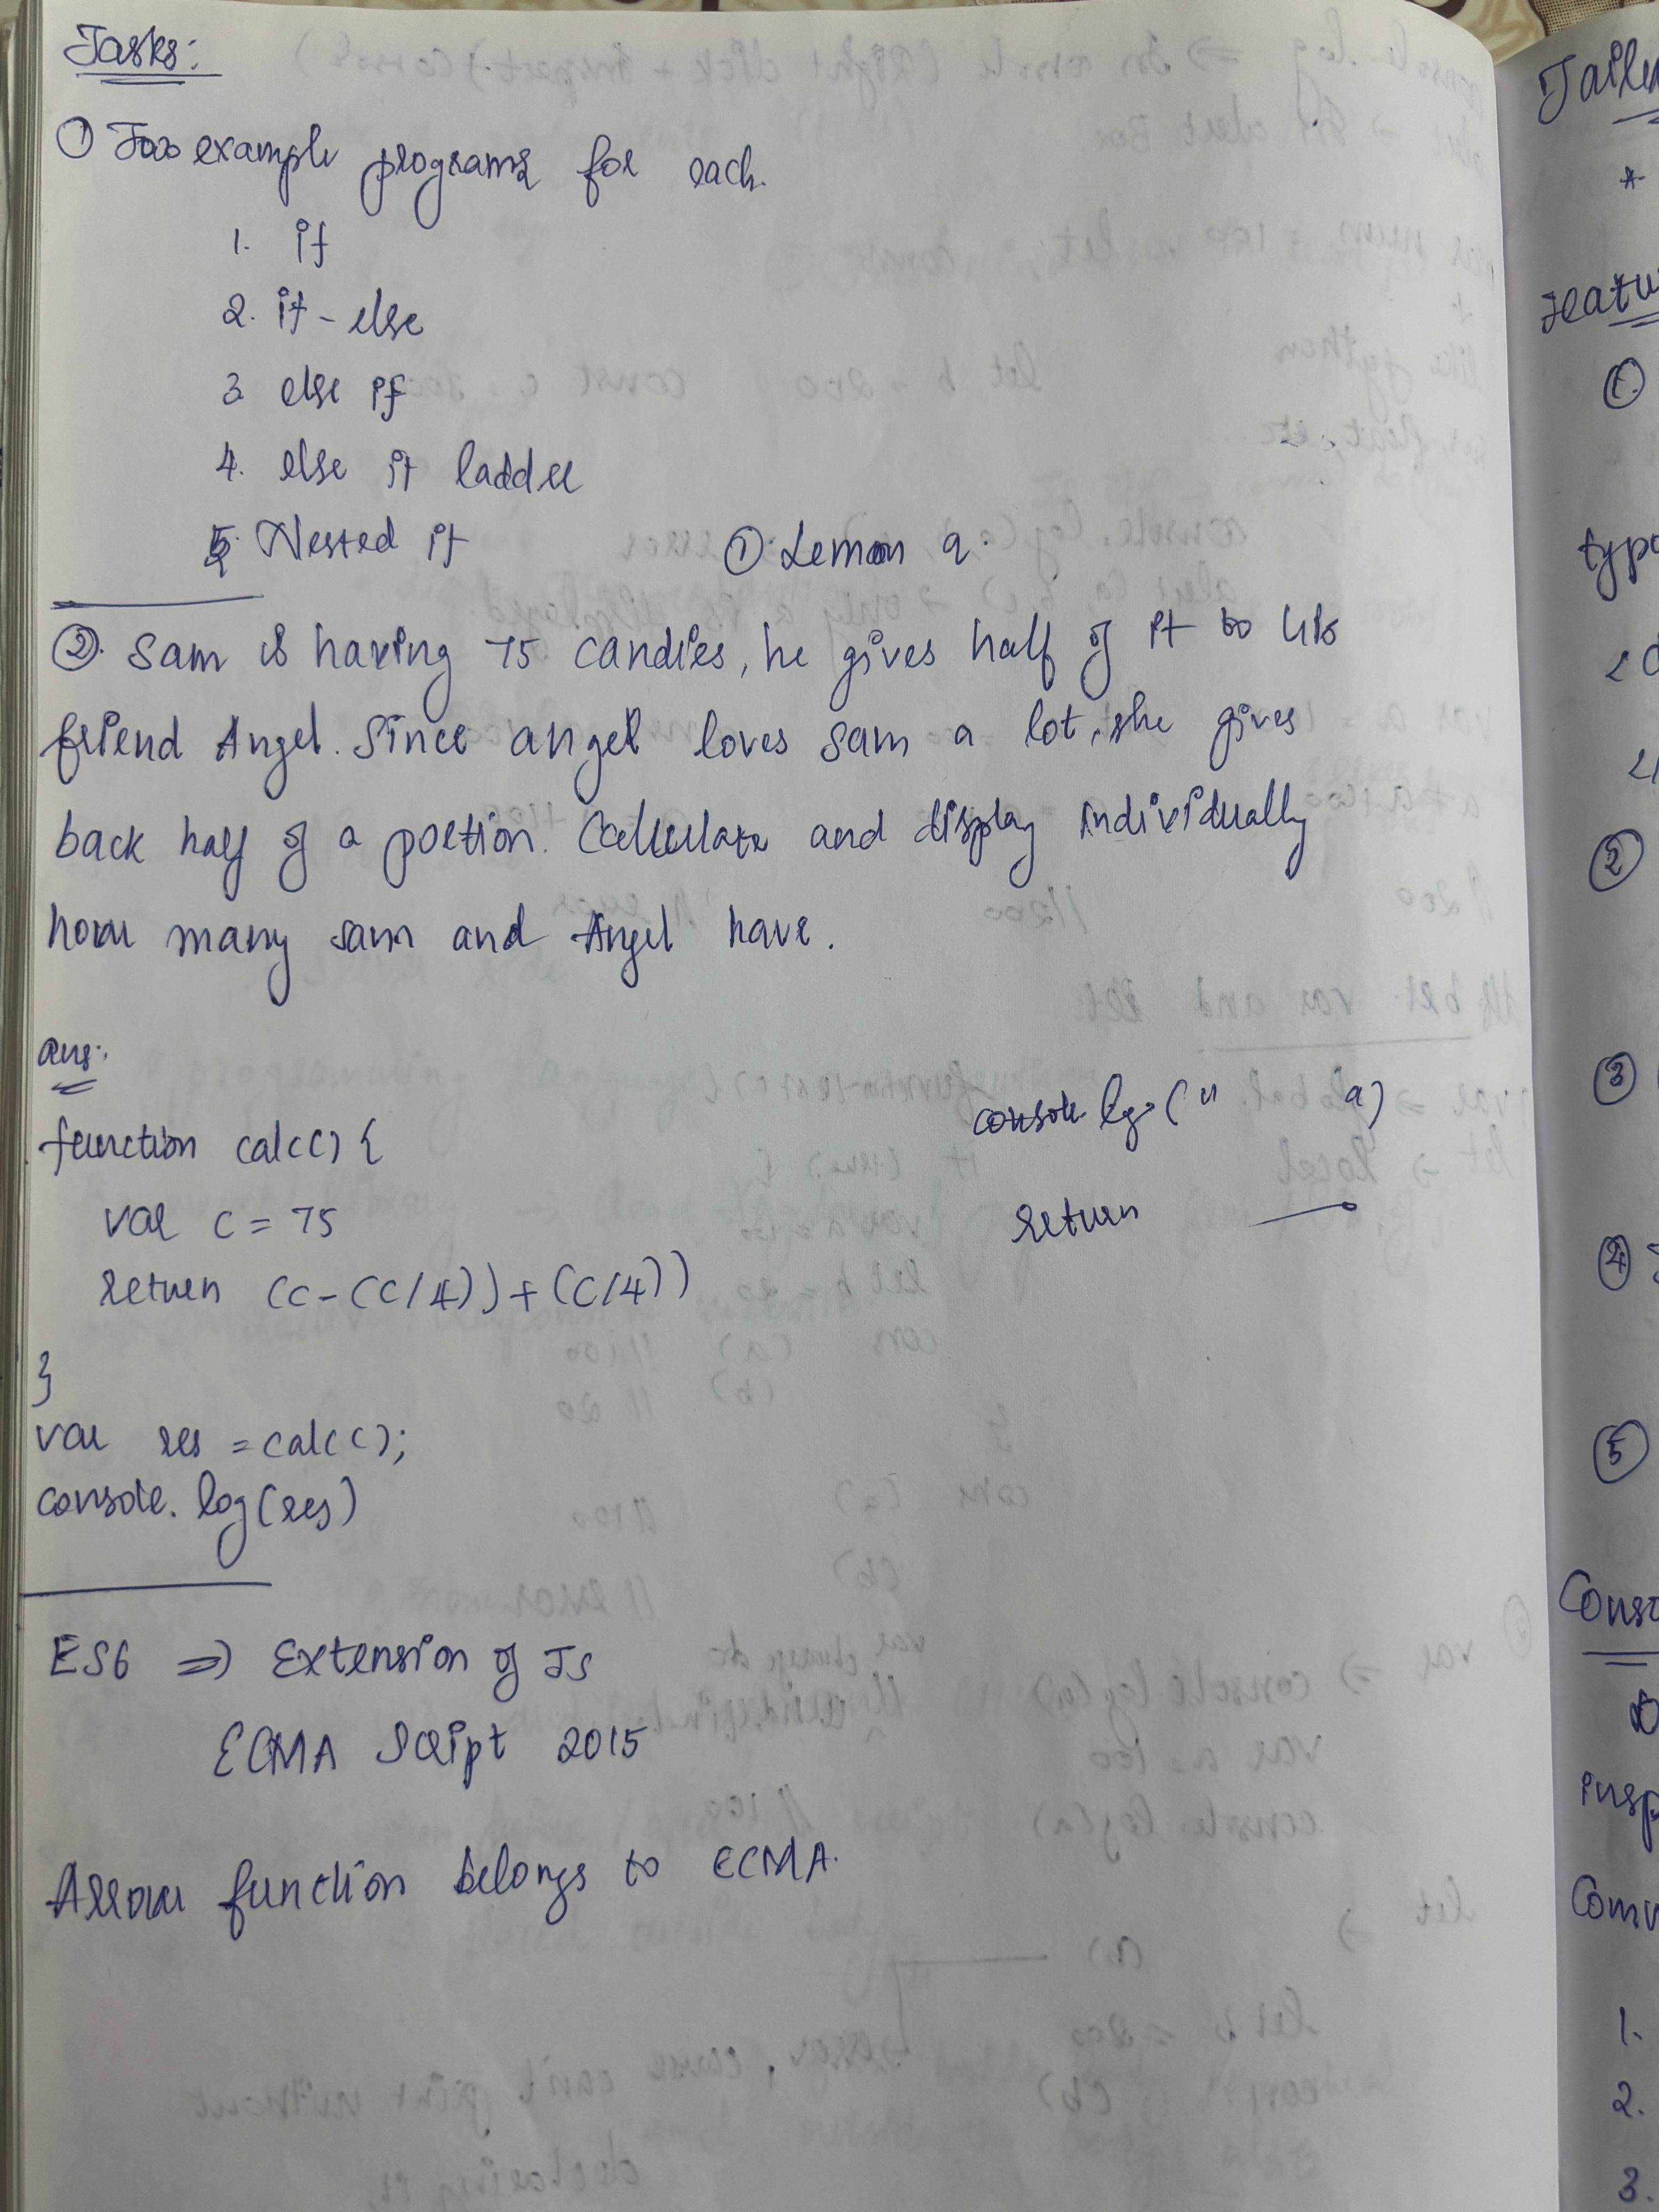 Tasks:
① Two example programs for each.
1. if
2. if-else
3 else if
4. else if ladder
5. Nested if
① Lemon q.
②. Sam is having 75 candies, he gives half of it to his
friend Angel. Since angel loves Sam a lot, she gives
back half of a portion. Calculate and display individually
how many sam and Angel have.
ans:
function calc() {
var c = 75
return (c-(c/4))+(c/4))
}
var res = calc();
console.log(res)
console.log("   a)
return
ES6 ⇒ Extension of JS
ECMA Script 2015
Arrow function belongs to ECMA.
①
②
③
④
⑤
1.
2.
3.